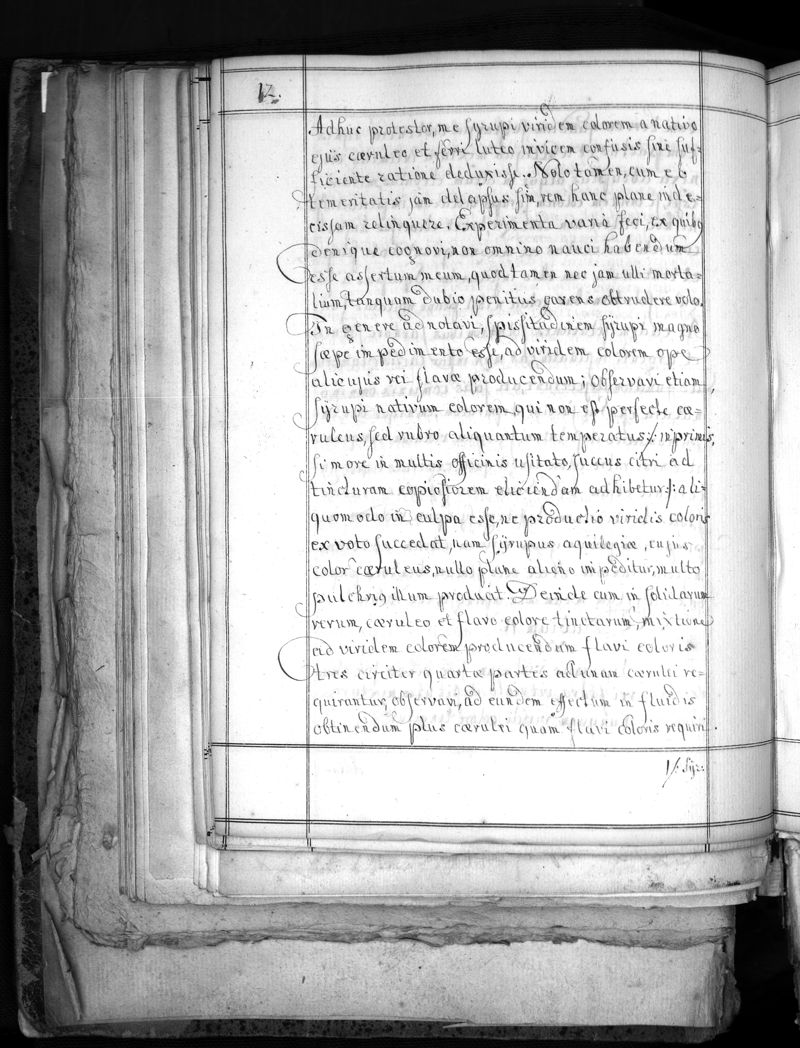 12.
Adhuc protestor, me syrupi viridem colorem a nativo
ejus cæruleo et ferri luteo invicem confusis sine suf-
ficiente ratione deduxisse. Nolo tamen, cum eò
temeritatis jam delapsus sim, rem hanc plane inde=
cissam relinquere. Experimenta varia feci, ex quibq
denique cognovi, non omnino nauci habendum
esse assertum meum, quod tamen nec jam ulli morta=
lium, tanquam dubio penitus carens obtrudere volo.
In genere adnotavi, spissitudinem syrupi magno
sæpe impedimento esse, ad viridem colorem ope
alicujus rei flavæ producendum; observavi etiam,
syrupi nativum colorem, qui non est perfecte cæ=
ruleus, sed rubro aliquantum temperatus /: inprimis,
si more in multis officinis usitato, succus citri ad
tincturam copiosiorem eliciendam adhibetur :/ ali-
quomodo in culpa esse, ne productio viridis coloris
ex voto succedat, nam syrupus aquilegiæ, cujus
color cæruleus, nullo plane alieno impeditur, multo
pulchriq illum producit. Deinde cum in solidarum
rerum, cæruleo et flavo colore tinctarum, mixtione
ad viridem colorem producendum flavi coloris
tres circiter quartæ partes ad unam cærulei re=
quirantur, observavi, ad eundem effectum in fluidis
obtinendum plus cærulei quam flavi coloris requiri.
1/: Syr: